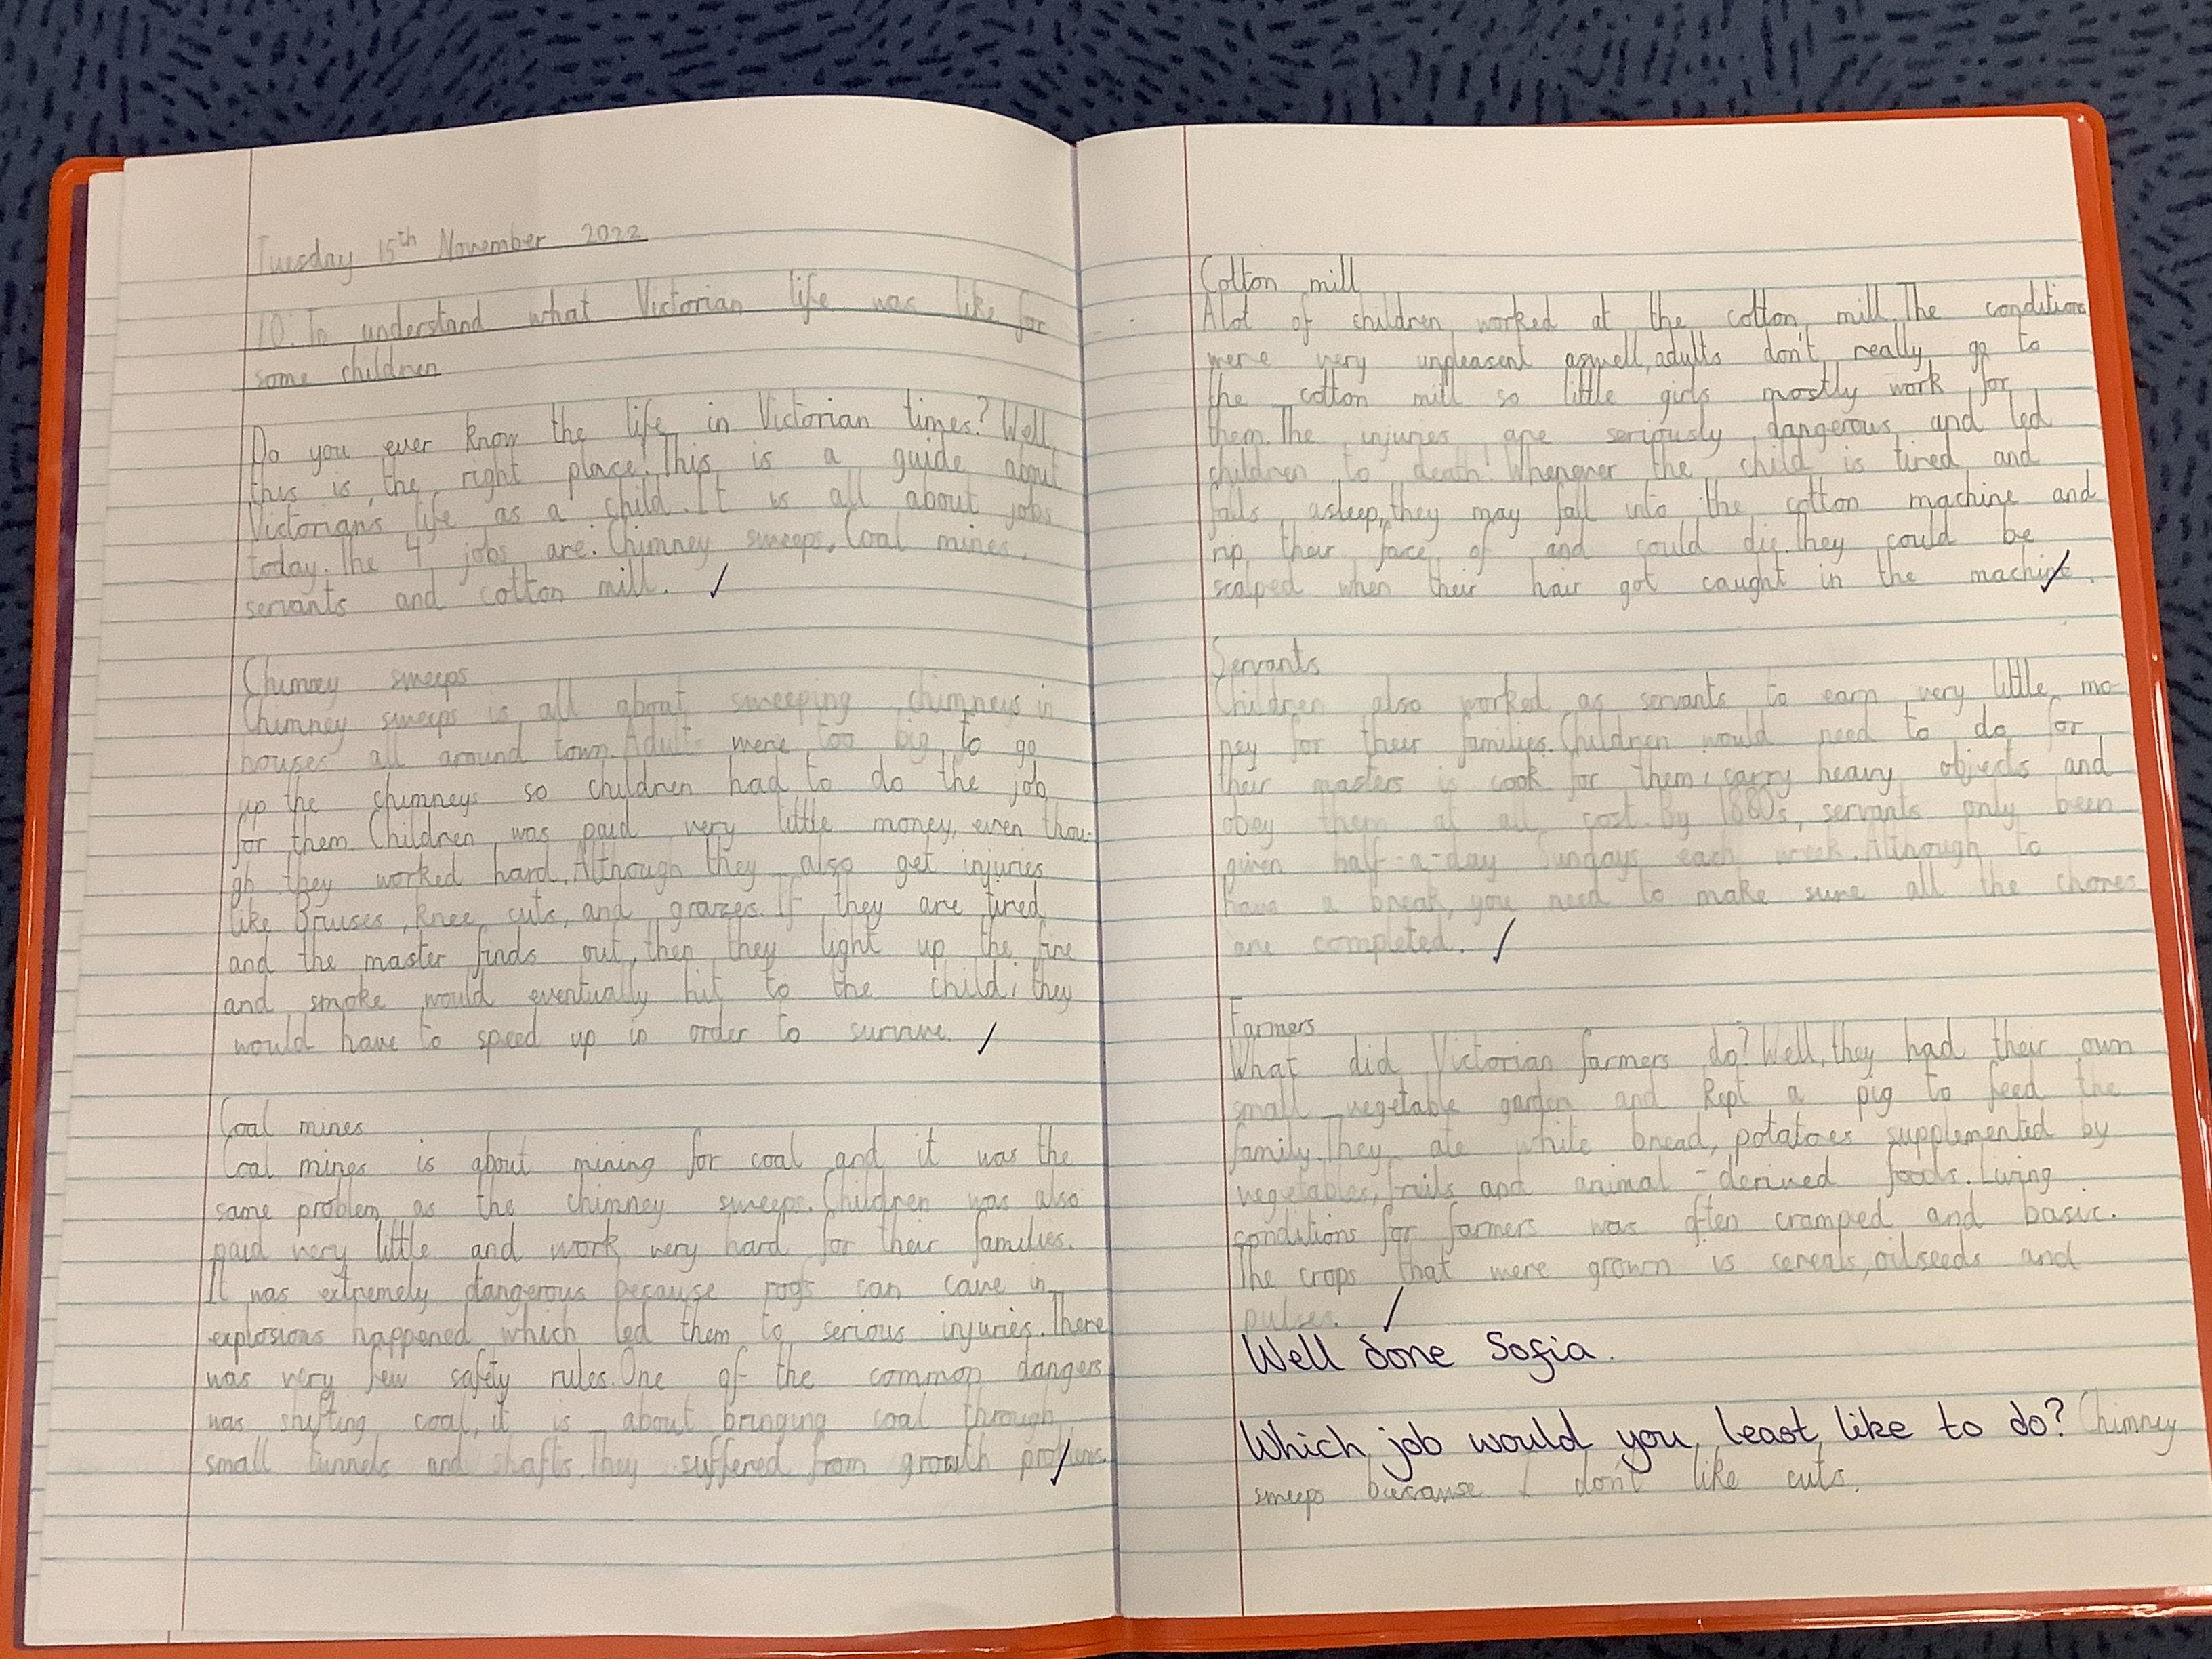 Tuesday 15th November 2022
LO: To understand what Victorian life was like for
some children
Do you ever know the life in Victorian times? Well,
this is the right place! This is a guide about
Victorian's life as a child. It is all about jobs
today. The 4 jobs are: Chimney sweeps, Coal mines,
servants and cotton mill.
Chimney sweeps
Chimney sweeps is all about sweeping chimneys in
houses all around town. Adults were too big to go
up the chimneys so children had to do the job
for them. Children was paid very little money, even thou-
gh they worked hard. Although they also get injuries
like Bruises, knee cuts, and grazes. If they are tired
and the master finds out, then they light up the fire
and smoke would eventually hit to the child; they
would have to speed up in order to survive.
Coal mines
Coal mines is about mining for coal and it was the
same problem as the chimney sweeps. Children was also
paid very little and work very hard for their families.
It was extremely dangerous because roofs can cave in,
explosions happened which led them to serious injuries. There
was very few safety rules. One of the common dangers
was shifting coal, it is about bringing coal through
small tunnels and shafts. They suffered from growth problems.
Cotton mill
Alot of children worked at the cotton mill. The conditions
were very unpleasent aswell, adults don't really go to
the cotton mill so little girls mostly work for
them. The injuries are seriously dangerous and led
children to death! Whenever the child is tired and
falls asleep, they may fall into the cotton machine and
rip their face of and could die. They could be
scalped when their hair got caught in the machine.
Servants
Children also worked as servants to earn very little mo-
ney for their families. Children would need to do for
their masters is cook for them; carry heavy objects and
obey them at all cost. By 1880s, servants only been
given half-a-day Sundays each week. Although to
have a break, you need to make sure all the chores
are completed.
Farmers
What did Victorian farmers do? Well, they had their own
small vegetable garden and kept a pig to feed the
family. They ate white bread, potatoes supplemented by
vegetables, fruits and animal-derived foods. Living
conditions for farmers was often cramped and basic.
The crops that were grown is cereals, oilseeds and
pulses.
Well done Sofia.
Which job would you least like to do? Chimney
sweeps because I don't like cuts.